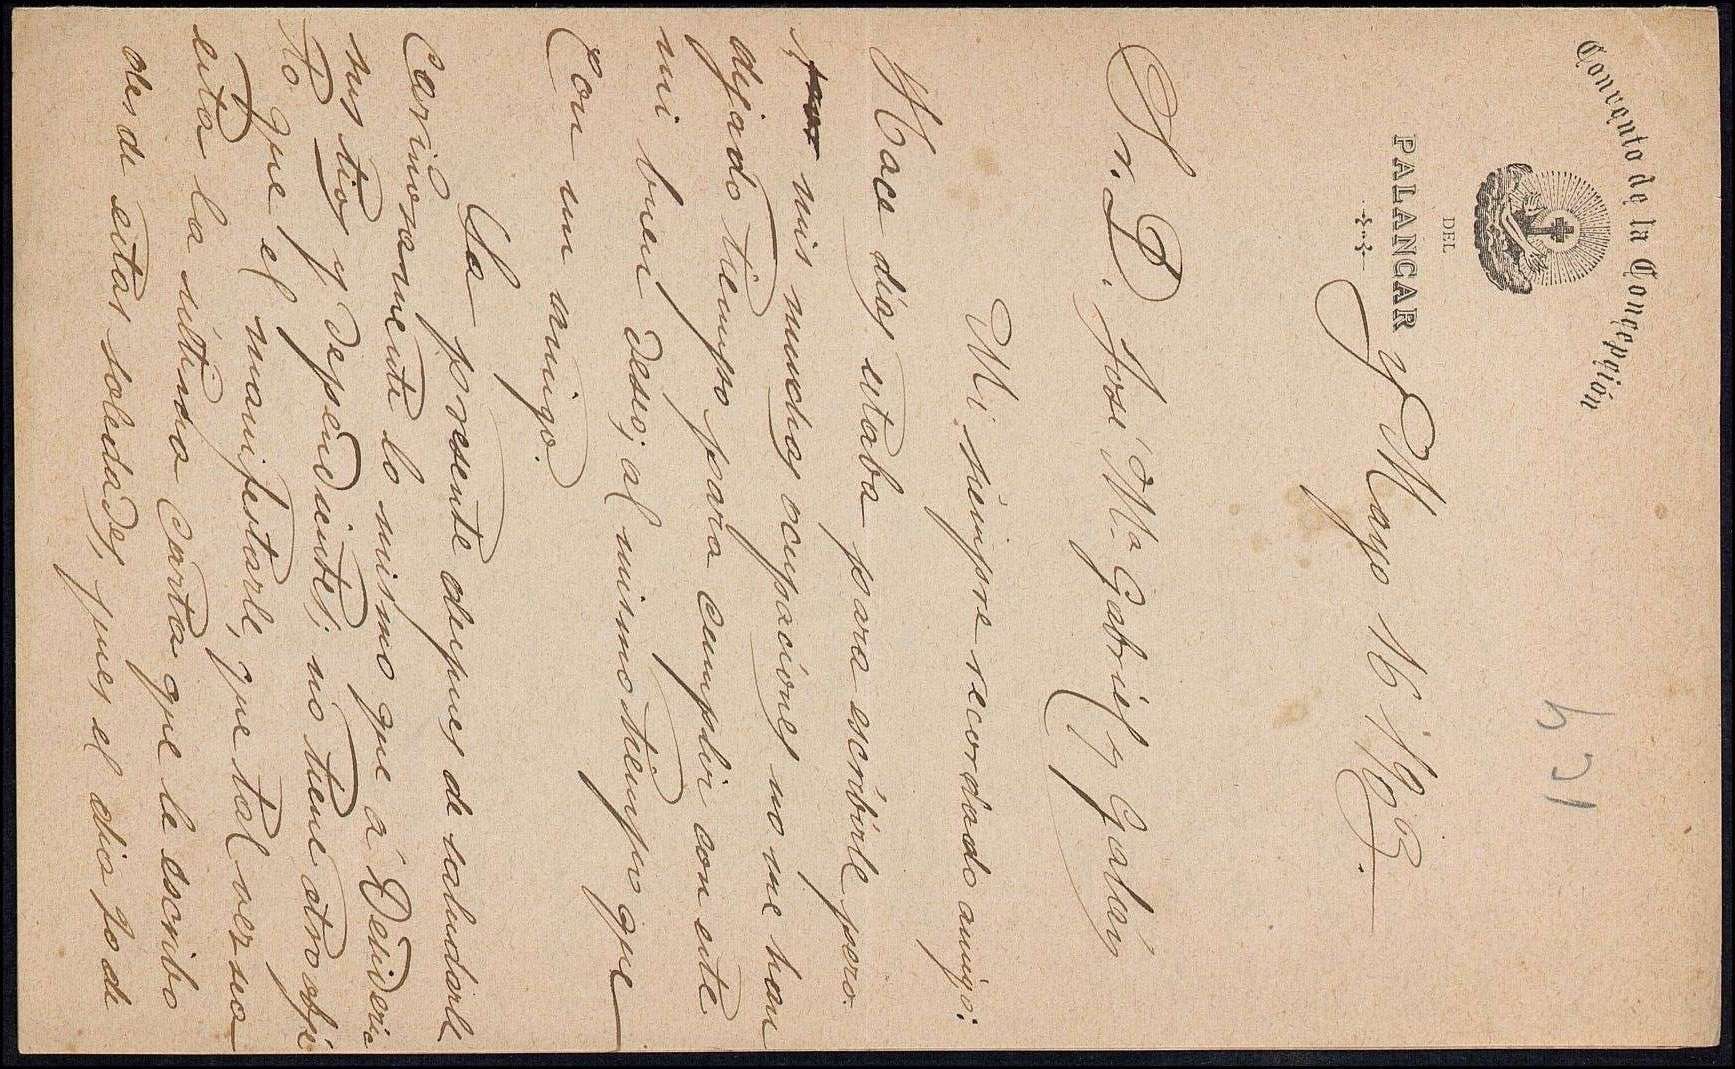 Convento de la Concepción
DEL
PALANCAR
y Mayo 16 1903.
Sr. D. José Mª Gabriel y Galán
Mi siempre recordado amigo:
Hace días estaba para escribirle pero
mis muchas ocupaciones no me han
dejado tiempo para cumplir con este
mi buen deseo; al mismo tiempo que
con un amigo.
La presente despues de saludarle
Cariñosamente lo mismo que a Desiderio
sus tios y dependientes; no tiene otro obje
to que el manifestarle, que tal vez sea
esta la última carta que le escribo
desde estas soledades, pues el dia 20 de